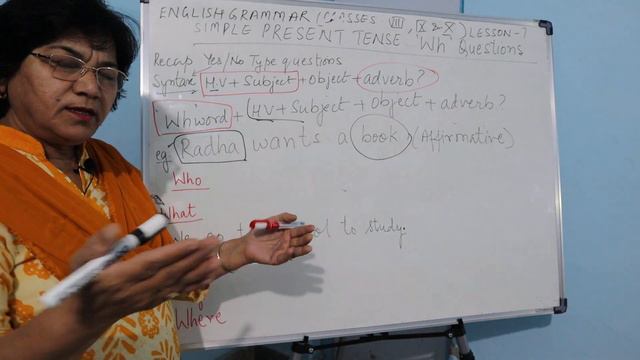 ENGLISH GRAMMAR (CLASSES VIII, IX & X) LESSON-7
SIMPLE PRESENT TENSE "Wh" Questions
Recap Yes/No Type questions
Syntax H.V + Subject + Object + adverb?
Wh'word + H.V + Subject + Object + adverb?
eg Radha wants a book (Affirmative)
Who
What
We go to study.
Where